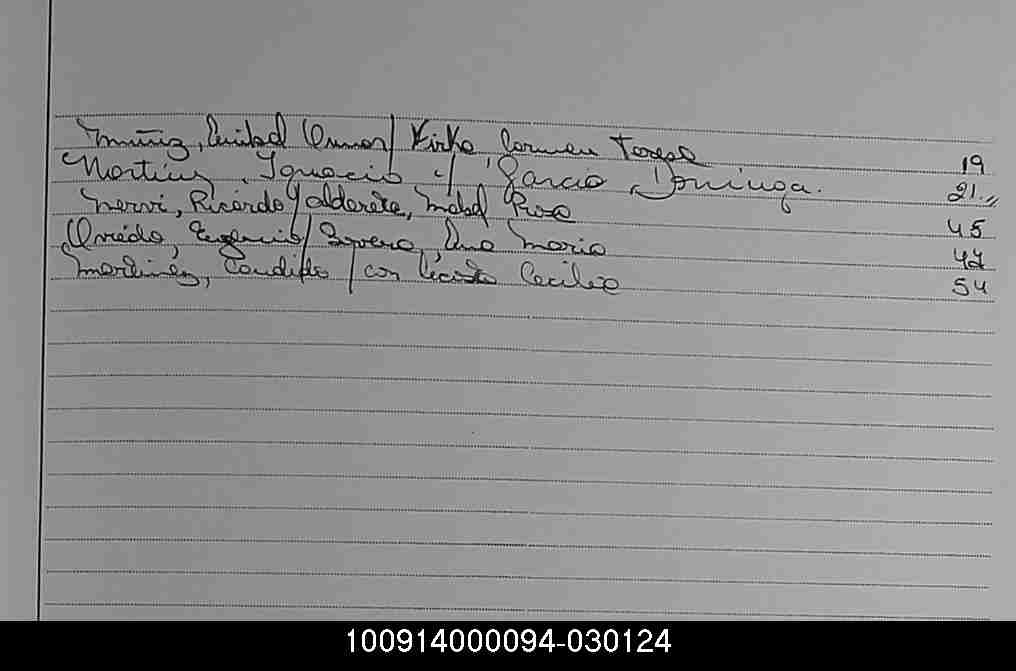 Muñiz, Omar / Kirke, Carmen Teresa 19
Martinez, Ignacio c/ Garcia, Dominga. 21.,,
Nervi, Ricardo / Alderete, Mabel Rosa 45
Oviedo, Eugenio / Ana Maria 47
Martinez, Candido / con Cecilia 54
100914000094-030124